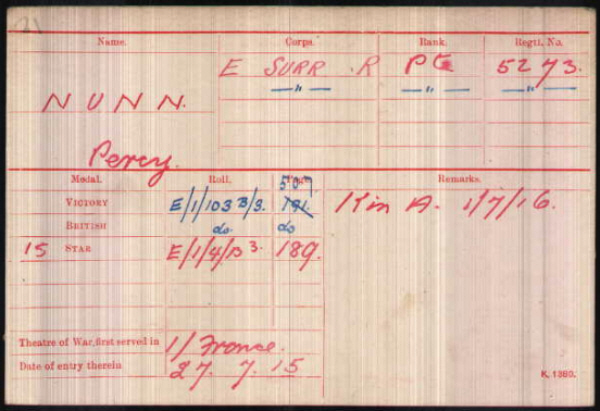 Name. Corps. Rank. Regtl. No.
E SURR . R Pte 5273.
—"— —"— —"—
NUNN.
Percy.
Medal. Roll. Page. Remarks.
507.
VICTORY E/1/103 B/3. 191. K in A. 1/7/16.
BRITISH do do
15 STAR E/1/4/B 3. 189.
Theatre of War, first served in 1/ France.
Date of entry therein 27. 7. 15
K. 1380.